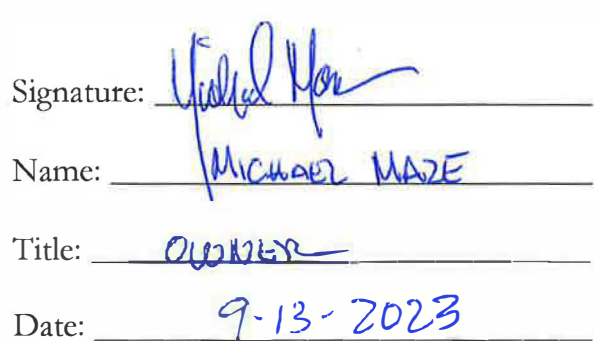 Signature: Michael
Name: MICHAEL MAZE
Title: OWNER
Date: 9-13-2023